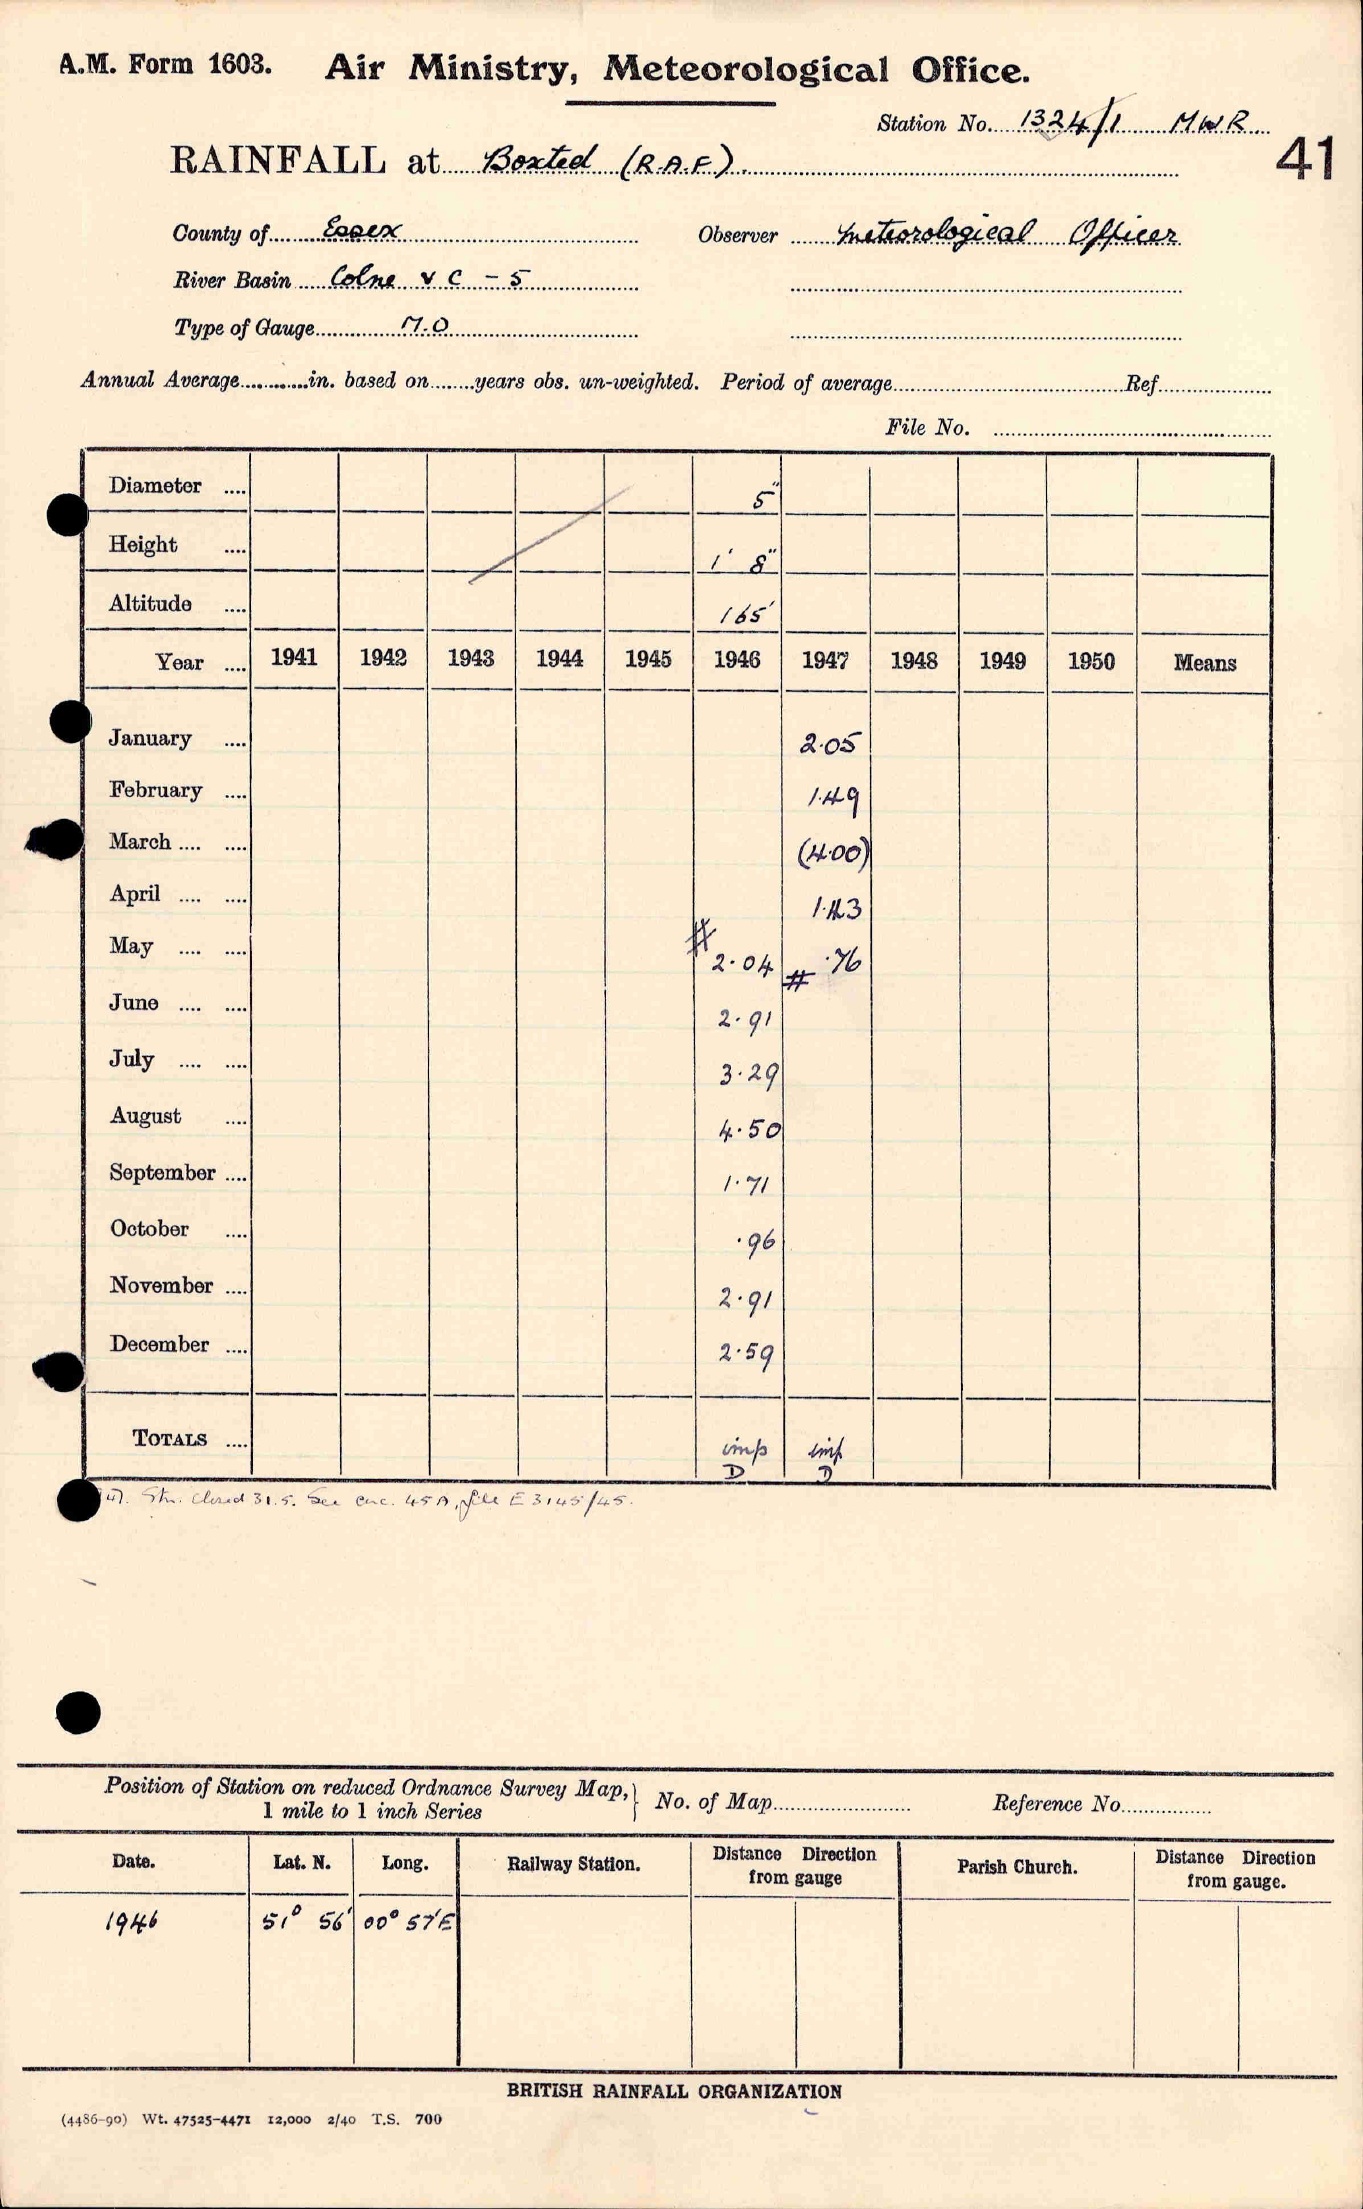 A.M. Form 1603. Air Ministry, Meteorological Office.
Station No. 1324/1 MWR
41
RAINFALL at Boxted (R.A.F).
County of Essex Observer Meteorological Officer
River Basin Colne v C - 5
Type of Gauge M.O
Annual Average............in. based on........years obs. un-weighted. Period of average............Ref............
File No. ............
Diameter .... 5"
Height .... 1' 8"
Altitude .... 165'
Year .... 1941 1942 1943 1944 1945 1946 1947 1948 1949 1950 Means
January .... 2.05
February .... 1.49
March .... .... (4.00)
April .... .... 1.43
May .... .... # 2.04 # .76
June .... .... 2.91
July .... .... 3.29
August .... 4.50
September .... 1.71
October .... .96
November .... 2.91
December .... 2.59
TOTALS .... imp D imp D
47. Stn. closed 31.5. See enc. 45A, file E 3145/45.
Position of Station on reduced Ordnance Survey Map, } No. of Map............ Reference No............
1 mile to 1 inch Series
Date. Lat. N. Long. Railway Station. Distance Direction from gauge Parish Church. Distance Direction from gauge.
1946 51° 56' 00° 57'E
BRITISH RAINFALL ORGANIZATION
(4486-90) Wt. 47525-4471 12,000 2/40 T.S. 700